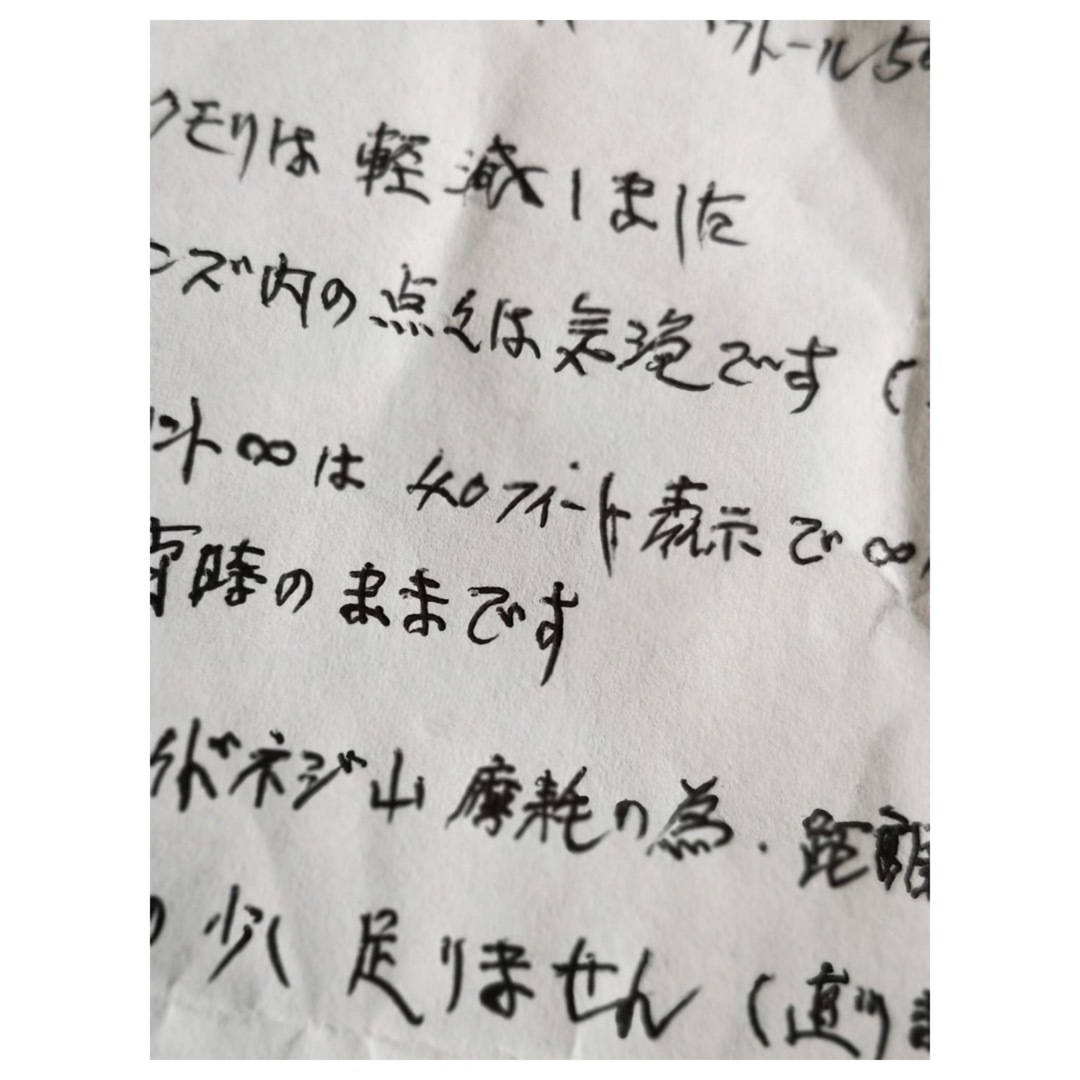 トール50
クモリは 軽減しました
ンズ内の点々は気泡です (
ント∞は 40フィート表示で∞
時のままです
ドネジ山 摩耗の為. 距離
の少し 足りません (直り